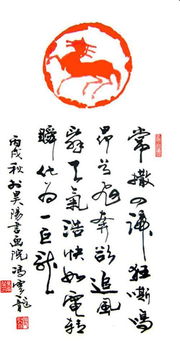 常撒四蹄狂嘶鸣
昂首飞奔欲追风
辞了气浩快如电转
瞬化为一巨龙
丙戌秋於昊阳书画院冯云龙